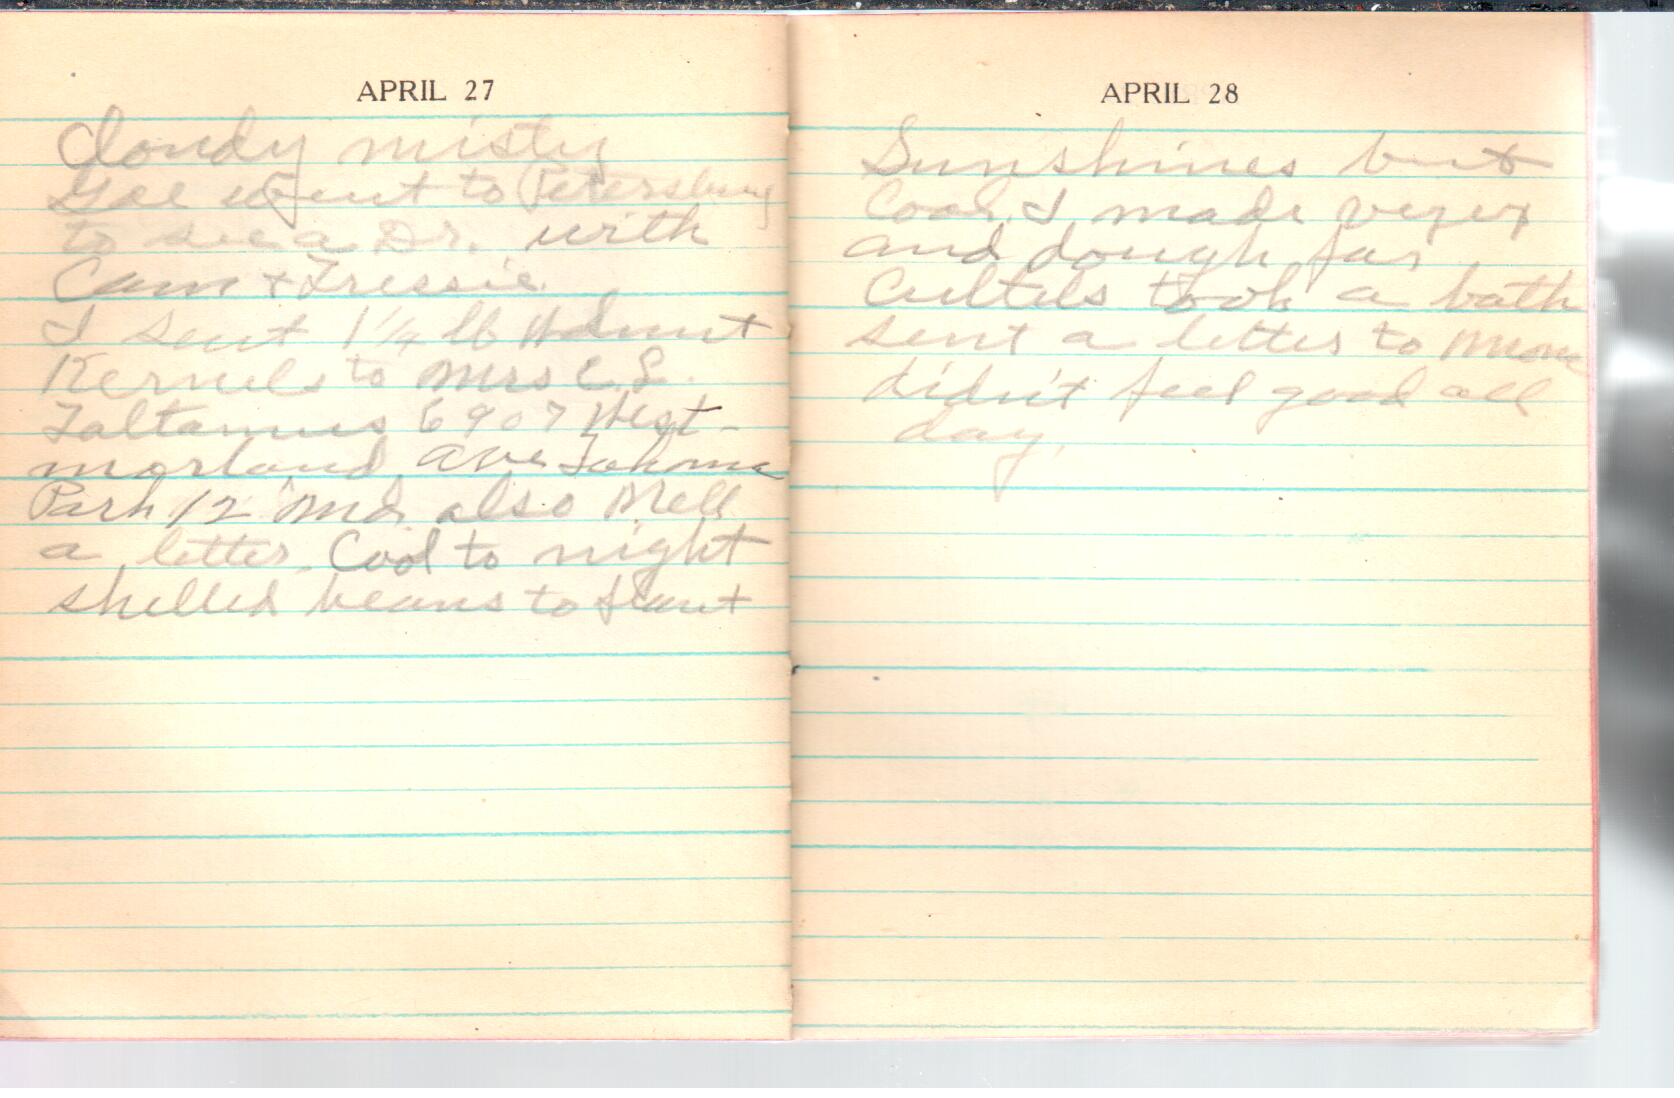 APRIL 27
Cloudy misty
went to Petersburg
to see a Dr. with
Cam + Tressie
I sent 1 1/4 lb Walnut
Kernels to Mrs C. S.
Taltamus 6907 West-
morland Ave Takoma
Park 12 Md. also Mell
a letter. Cool to night
shelled beans to
APRIL 28
Sunshines but
Cool. I made
and dough for
took a bath
sent a letter to
didn't feel good all
day.